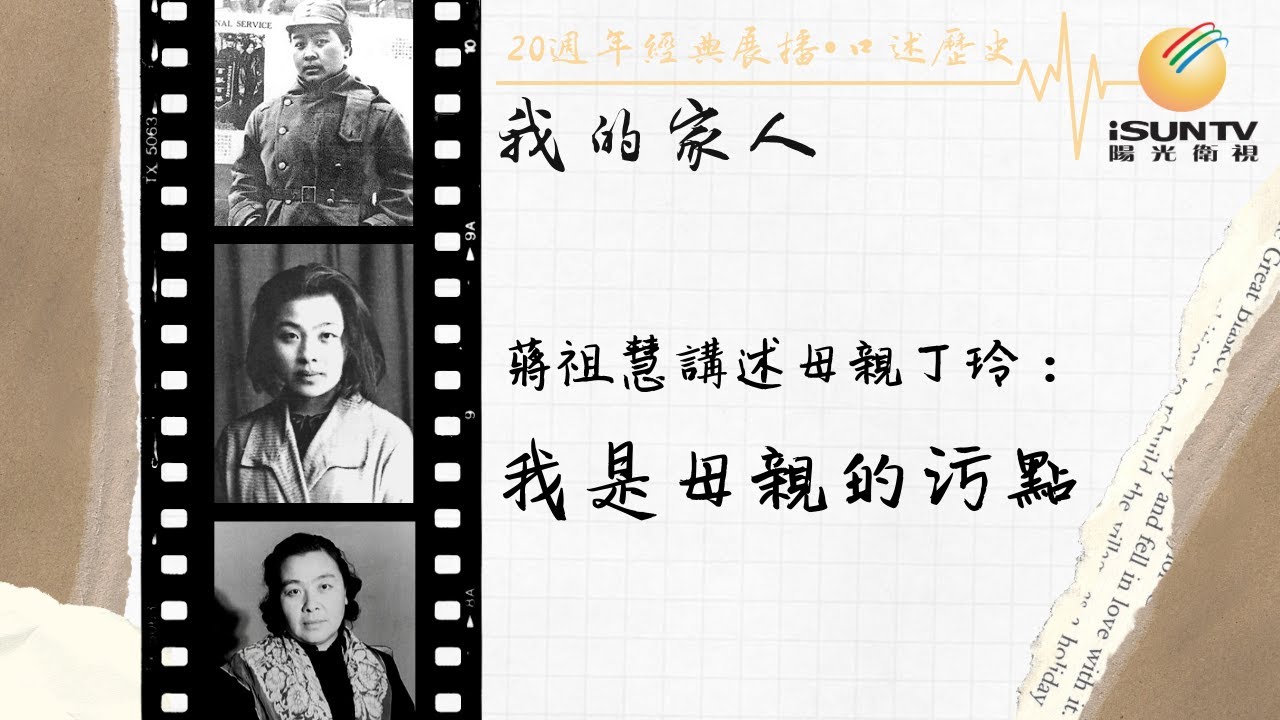 NAL SERVICE
20週年經典展播·口述歷史
iSUNTV
陽光衛視
我的家人
蔣祖慧講述母親丁玲：
我是母親的污點
TX 5063
10
9A
9
8A
Great blasket
rebuild the village
and fell in love with it.
as a holiday